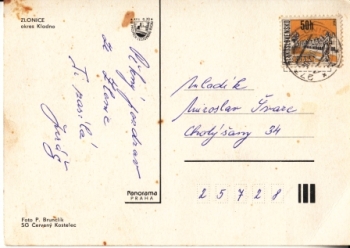 ZLONICE
okres Kladno
Pěkný pozdrav
ze Zlonic
Ti posílá
Foto P. Brunclík
SO Červený Kostelec
Panorama
PRAHA
50h
Mladík
Miroslav Švarc
Chotýšany 34
2 5 7 2 8